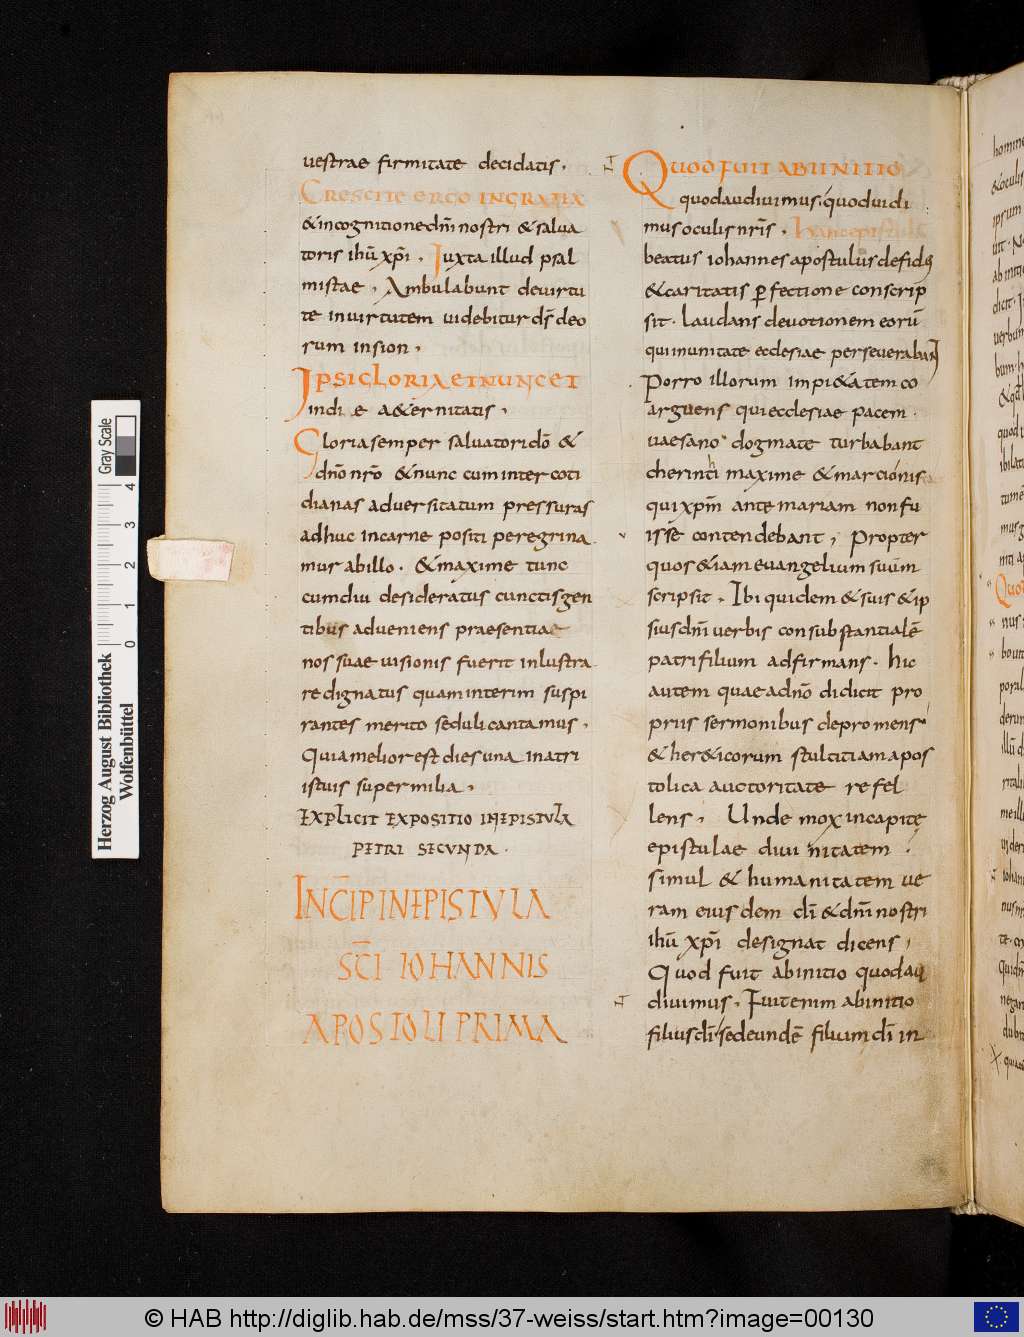 uestrae firmitate decidatis.
CRESCITE ERGO IN GRATIA
& in cognitione dn̄i nostri & salua
toris ihū xp̄i. Iuxta illud psal
mistae. Ambulabunt de uirtu
te in uirtutem uidebitur d̄s deo
rum in sion.
IPSI GLORIA ET NUNC ET
in die a&ernitatis.
Gloria semper saluatori dō &
dn̄o nr̄o & nunc cum inter coti
dianas aduersitatum pressuras
adhuc in carne positi peregrina
mur ab illo. & maxime tunc
cum diu desideratus cunctis gen
tibus adueniens praesentiae
nos suae uisionis fuerit inlustra
re dignatus quam interim suspi
rantes merito seduli cantamus.
Quia melior est dies una in atri
is tuis super milia.
EXPLICIT EXPOSITIO IN EPISTULA
PETRI SECUNDA.
INCĪP IN EPISTULA
SC̄I IOHANNIS
APOSTOLI PRIMA
QUOD FUIT AB INITIO
quod audiuimus, quod uidi
mus oculis nr̄is. Hanc epistula
beatus iohannes apostulus de fide
& caritatis ꝑfectione conscrip
sit. Laudans deuotionem eorū
qui in unitate ecclesiae perseuerabant
Porro illorum impi&atem co
arguens qui ecclesiae pacem
uaesano dogmate turbabant
cherinthi maxime & marcionis
qui xp̄m ante mariam non fu
isse contendebant, Propter
quos &iam euangelium suum
scripsit. Ibi quidem & suis & ip
sius dn̄i uerbis consubstantialē
patri filium adfirmans. hic
autem quae a dn̄o didicit pro
priis sermonibus depromens
& her&icorum stultitiam apos
tolica auctoritate refel
lens. Unde mox in capite
epistulae diuinitatem
simul & humanitatem ue
ram eiusdem dī & dn̄i nostri
ihū xp̄i designat dicens,
Quod fuit ab initio quod au
diuimus. Fuit enim ab initio
filius dī sed eundē filium dī in
homine
&oculis
ipsum
ab initio
dicit.
uerbum
Herzog August Bibliothek
Wolfenbüttel
0 1 2 3 4
Gray Scale
© HAB http://diglib.hab.de/mss/37-weiss/start.htm?image=00130